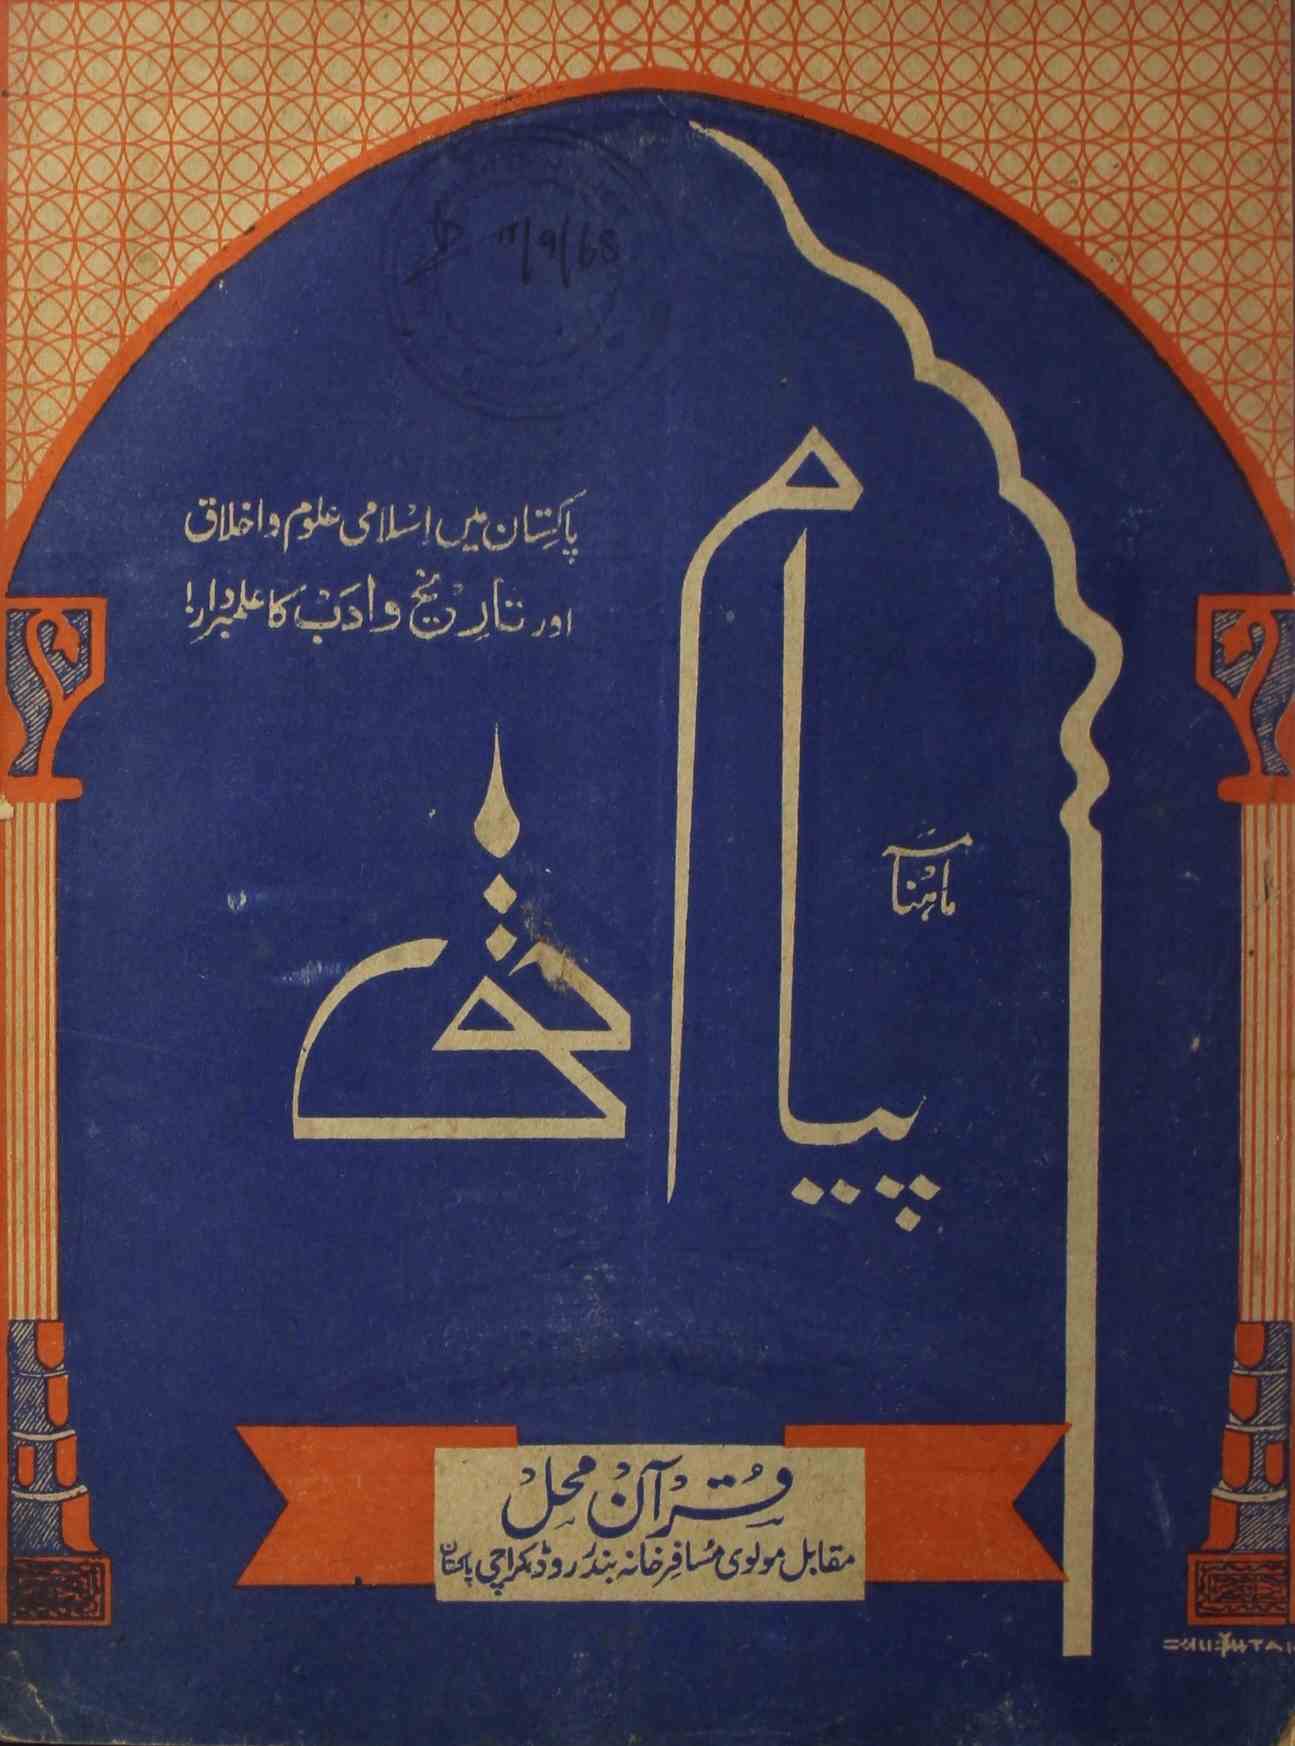 11/9/68
پاکستان میں اسلامی علوم و اخلاق
اور تاریخ و ادب کا علمبردار!
ماہنامہ
پیام حق
قرآن محل
مقابل مولوی مسافر خانہ بندر روڈ کراچی پاکستان